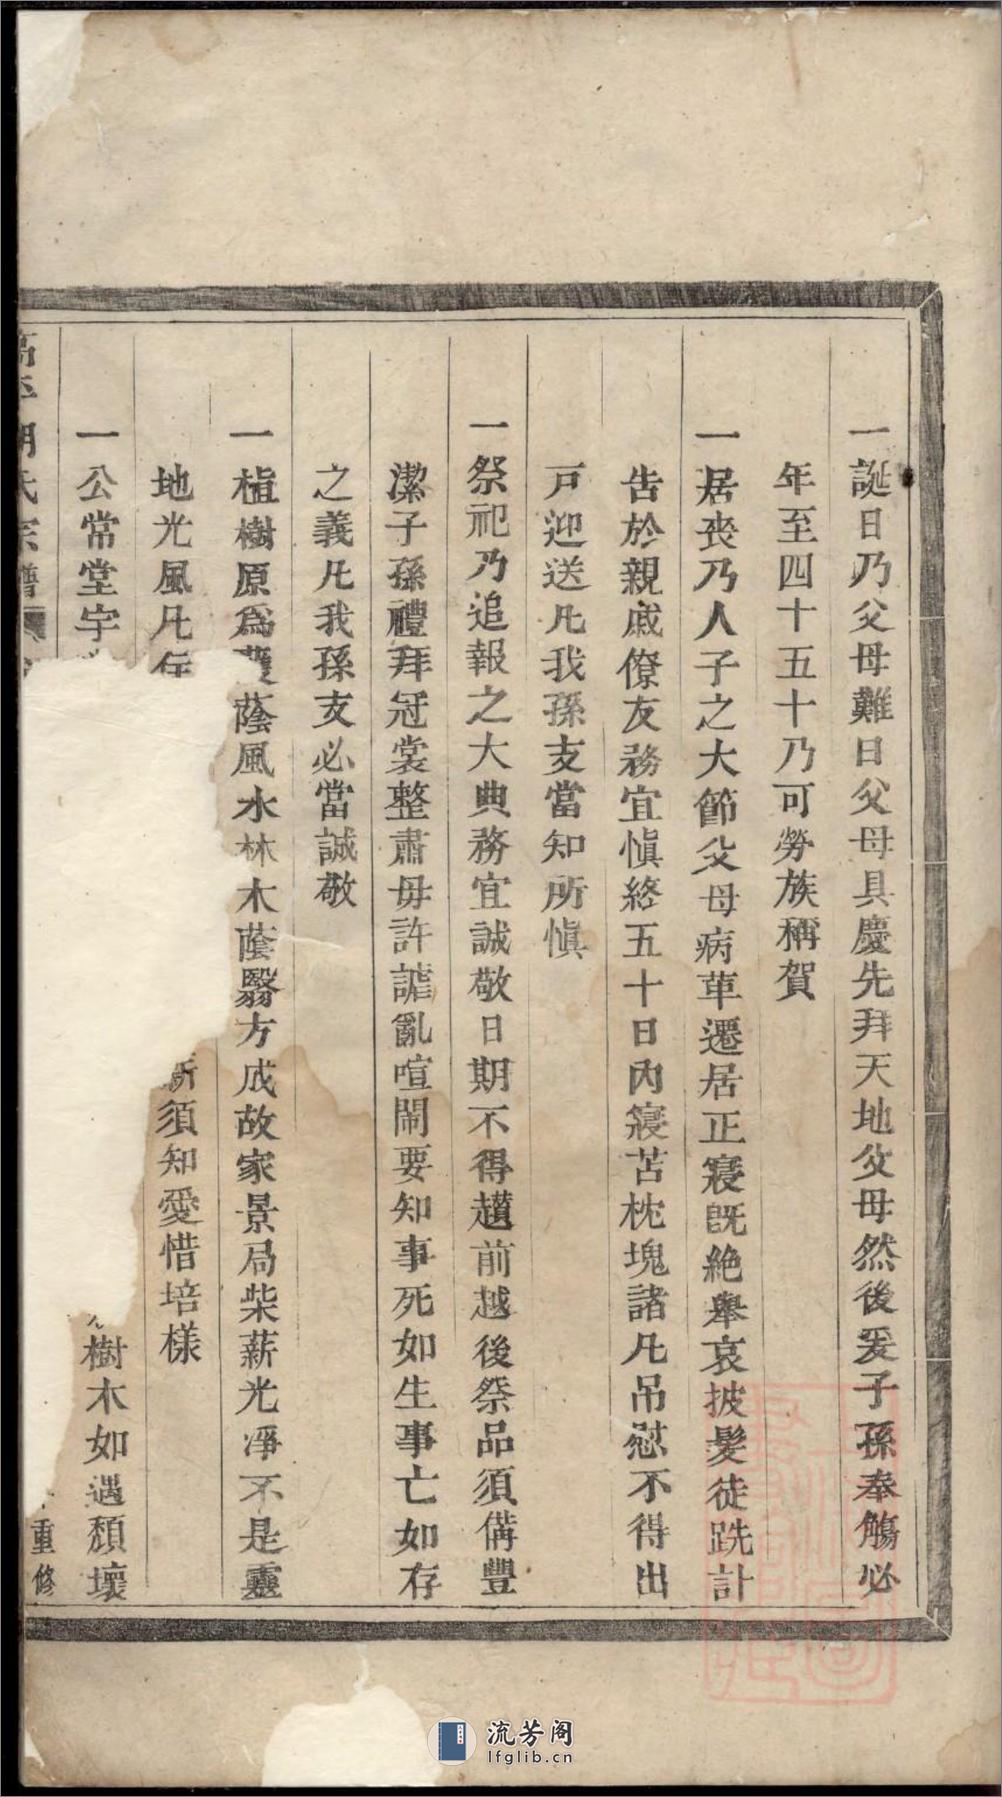 一誕日乃父母難日父母具慶先拜天地父母然後爰子孫奉觴必
年至四十五十乃可勞族稱賀
一居喪乃人子之大節父母病革遷居正寢旣絶舉哀披髮徒跣計
告於親戚僚友務宜愼終五十日內寢苫枕塊諸凡吊慰不得出
戸迎送凡我孫支當知所愼
一祭祀乃追報之大典務宜誠敬日期不得趲前越後祭品須備豐
潔子孫禮拜冠裳整肅毋許謔亂喧鬧要知事死如生事亡如存
之義凡我孫支必當誠敬
一植樹原爲蔭風水林木蔭翳方成故家景局柴薪光凈不是靈
地光風凡
新須知愛惜培樣
一公常堂宇
樹木如遇頽壞
氏宗譜
重修
流芳阁
lfglib.cn